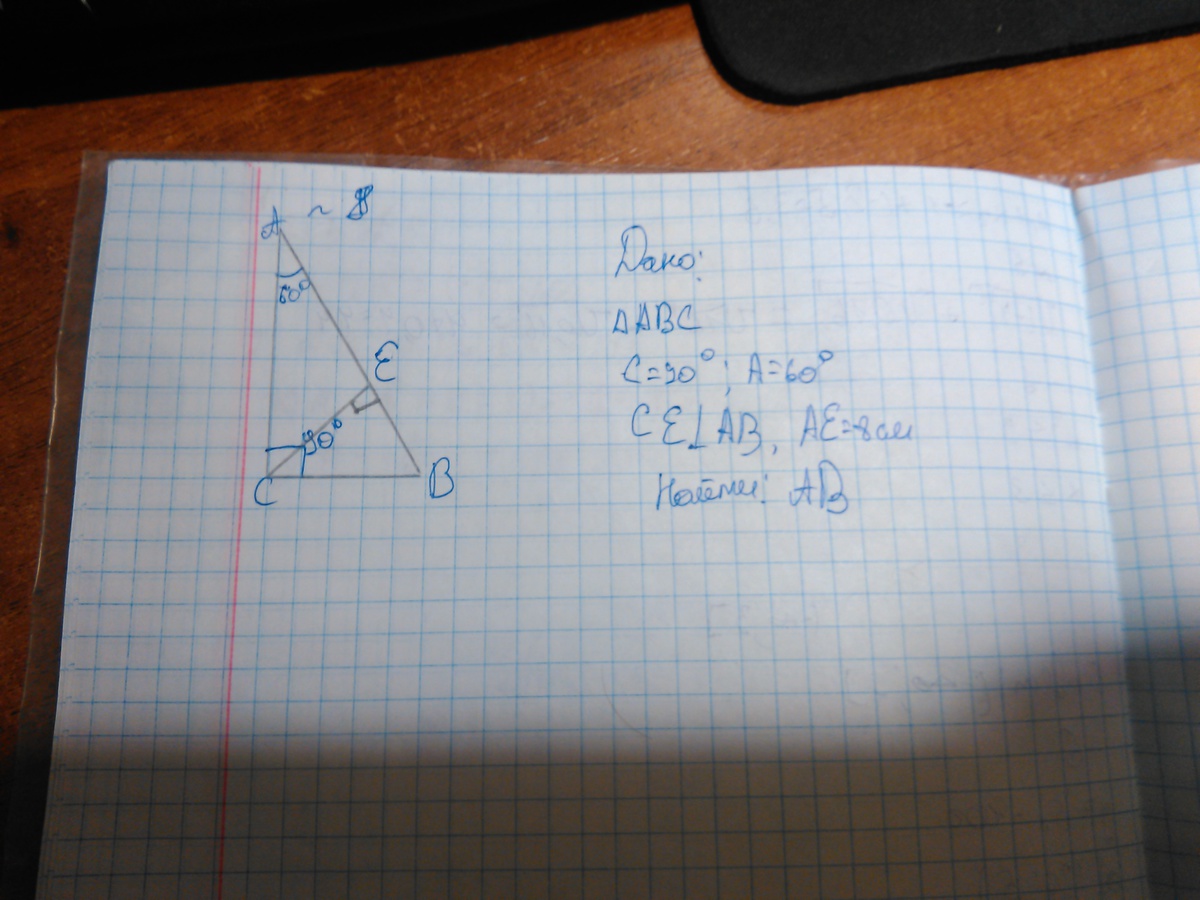 A ~ 8
60°
E
90°
C
B
Дано:
ΔABC
C=90°; A=60°
CE⊥AB, AE=8см
Найти: AB